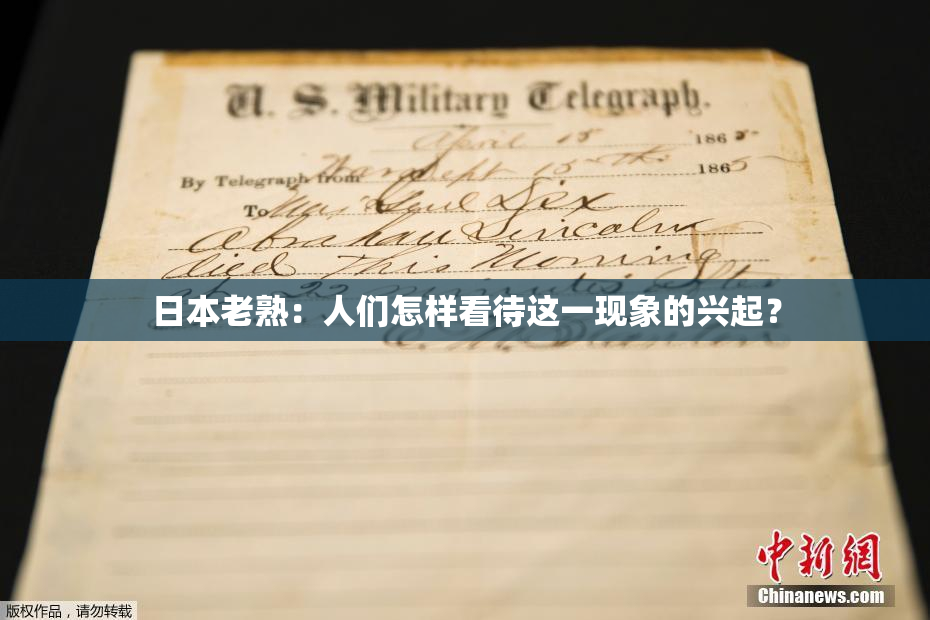 U. S. Military Telegraph.
April 15 1865
By Telegraph from War Dept 15th 1865
To Maj Genl Dix
Abraham Lincoln
died This Morning
at 22 minutes after
日本老熟：人们怎样看待这一现象的兴起？
E. M. Stanton
中新網
Chinanews.com
版权作品，请勿转载